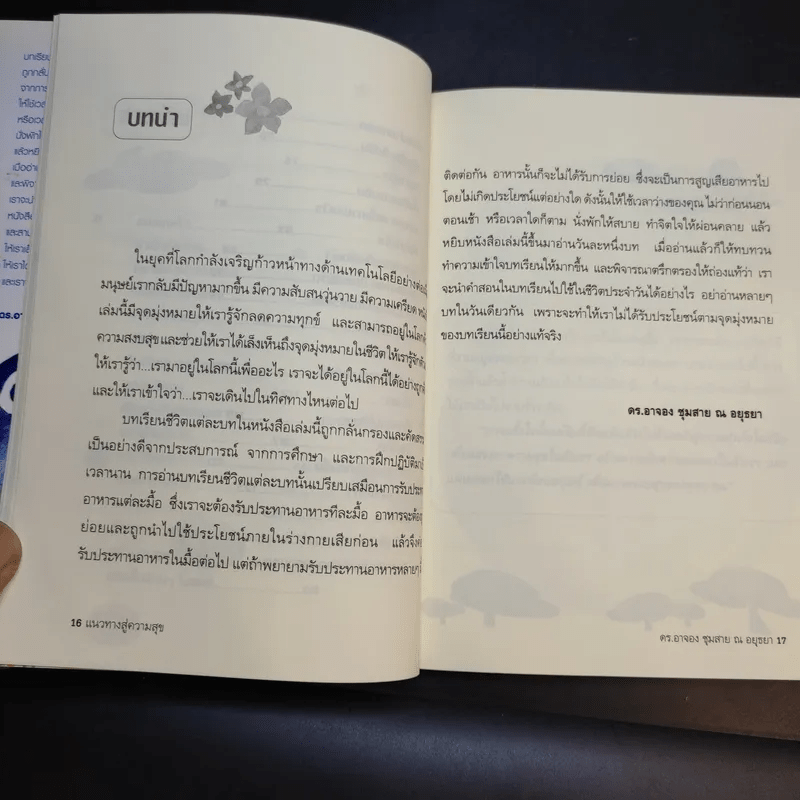 บทนำ
ในยุคที่โลกกำลังเจริญก้าวหน้าทางด้านเทคโนโลยีอย่าง
มนุษย์เรากลับมีปัญหามากขึ้น มีความสับสนวุ่นวาย มีความเครียด
เล่มนี้มีจุดมุ่งหมายให้เรารู้จักลดความทุกข์ และสามารถอยู่ในโลก
ความสงบสุขและช่วยให้เราได้เล็งเห็นถึงจุดมุ่งหมายในชีวิต ให้เรารู้จัก
ให้เรารู้ว่า...เรามาอยู่ในโลกนี้เพื่ออะไร เราจะได้อยู่ในโลกนี้ได้อย่าง
และให้เราเข้าใจว่า...เราจะเดินไปในทิศทางไหนต่อไป
บทเรียนชีวิตแต่ละบทในหนังสือเล่มนี้ถูกกลั่นกรองและ
เป็นอย่างดีจากประสบการณ์ จากการศึกษา และการฝึกปฏิบัติ
เวลานาน การอ่านบทเรียนชีวิตแต่ละบทนั้นเปรียบเสมือนการ
อาหารแต่ละมื้อ ซึ่งเราจะต้องรับประทานอาหารทีละมื้อ อาหารจะต้อง
ย่อยและถูกนำไปใช้ประโยชน์ภายในร่างกายเสียก่อน แล้วจึง
รับประทานอาหารในมื้อต่อไป แต่ถ้าพยายามรับประทานอาหารหลายๆ
16 แนวทางสู่ความสุข
ติดต่อกัน อาหารนั้นก็จะไม่ได้รับการย่อย ซึ่งจะเป็นการสูญเสียอาหารไป
โดยไม่เกิดประโยชน์แต่อย่างใด ดังนั้นให้ใช้เวลาว่างของคุณ ไม่ว่าก่อนนอน
ตอนเช้า หรือเวลาใดก็ตาม นั่งพักให้สบาย ทำจิตใจให้ผ่อนคลาย แล้ว
หยิบหนังสือเล่มนี้ขึ้นมาอ่านวันละหนึ่งบท เมื่ออ่านแล้วก็ให้ทบทวน
ทำความเข้าใจบทเรียนให้มากขึ้น และพิจารณาตรึกตรองให้ถ่องแท้ว่า เรา
จะนำคำสอนในบทเรียนไปใช้ในชีวิตประจำวันได้อย่างไร อย่าอ่านหลายๆ
บทในวันเดียวกัน เพราะจะทำให้เราไม่ได้รับประโยชน์ตามจุดมุ่งหมาย
ของบทเรียนนี้อย่างแท้จริง
ดร.อาจอง ชุมสาย ณ อยุธยา
ดร.อาจอง ชุมสาย ณ อยุธยา 17